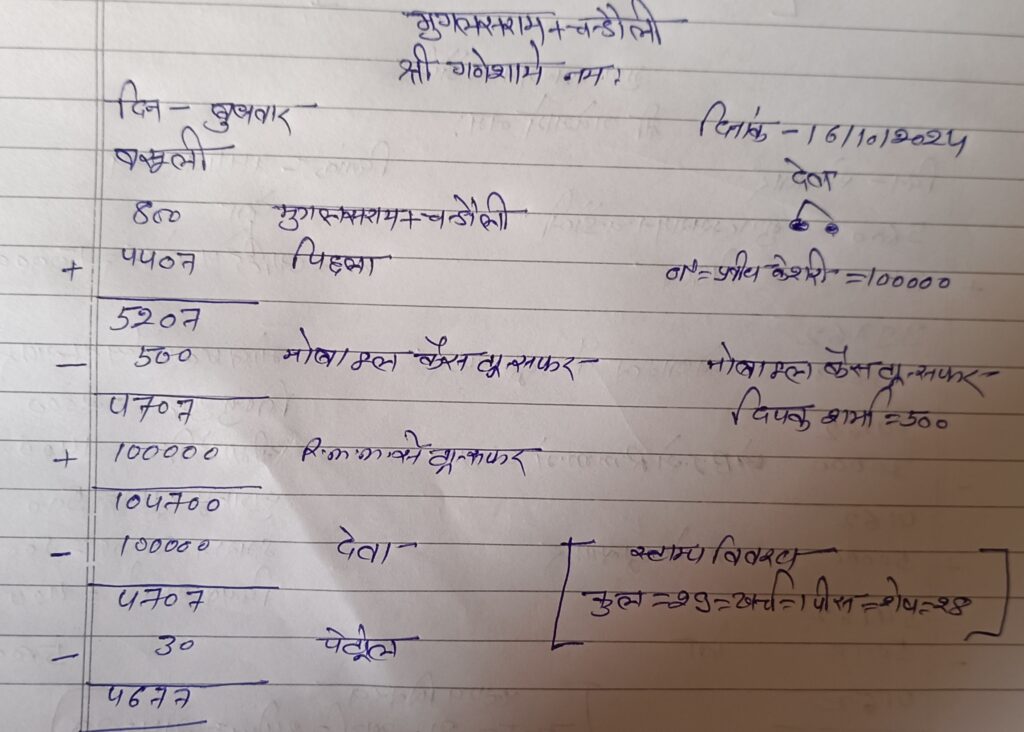 मुगलसराय + चन्दौली
श्री गणेशाये नमः
दिन - बुधवार
दिनांक - 16/10/2024
वसूली
देता
800 मुगलसराय + चन्दौली
+ 4407 पिछला
= प्रदीप केशरी = 100000
5207
- 500 मोबाइल कैस ट्रान्सफर
मोबाइल कैस ट्रान्सफर
4707
दिपक शर्मा = 500
+ 100000 ट्रान्सफर
104700
- 100000 देता
स्टाम्प विवरण
4707
कुल = 29 = खर्च = 1 पीस = शेष = 28
- 30 पेट्रोल
4677